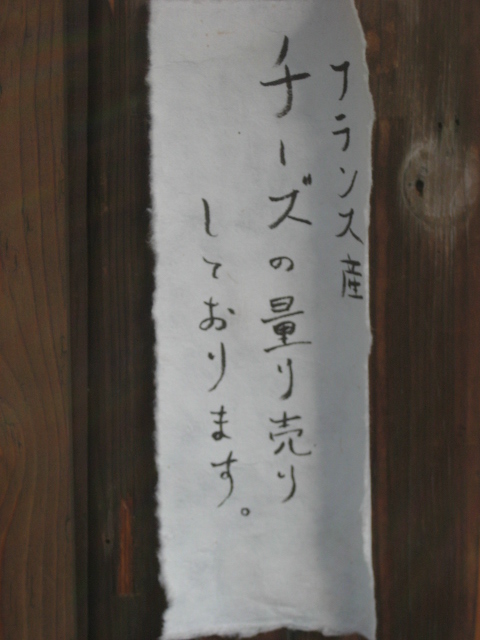 フランス産
チーズの量り売り
しております。